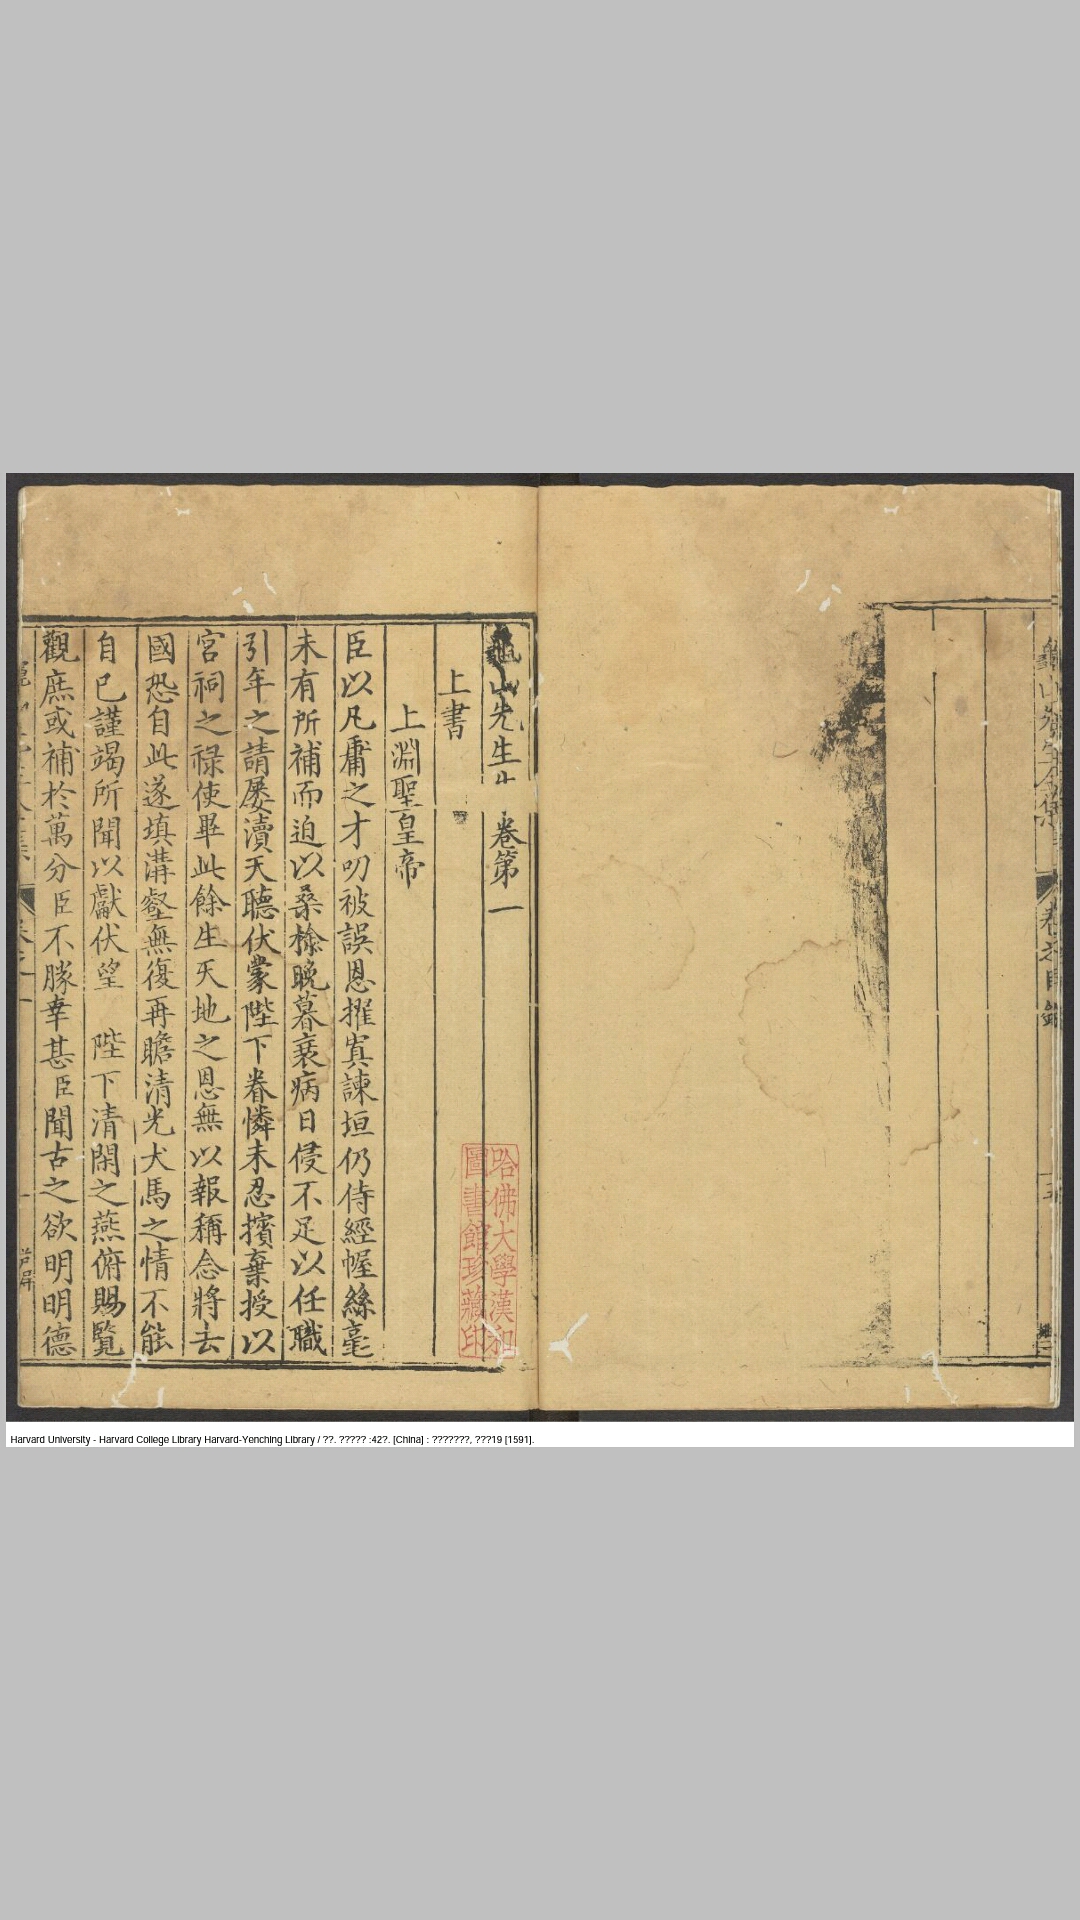 龜山先生全集
卷之目錄
五
龜山先生 卷第一
上書
上淵聖皇帝
臣以凡庸之才叨被誤恩擢寘諫垣仍侍經幄絲毫
未有所補而迫以桑榆晚暮衰病日侵不足以任職
引年之請屡瀆天聽伏蒙陛下眷憐未忍擯棄授以
宮祠之禄使畢此餘生天地之恩無以報稱念將去
國恐自此遂填溝壑無復再瞻清光犬馬之情不能
自已謹竭所聞以獻伏望 陛下清閑之燕俯賜覽
觀庶或補於萬分臣不勝幸甚臣聞古之欲明明德
卷之一
一
哈佛大學漢和
圖書館珍藏印
Harvard University - Harvard College Library Harvard-Yenching Library / ??. ????? :42?. [China] : ???????, ???19 [1591].